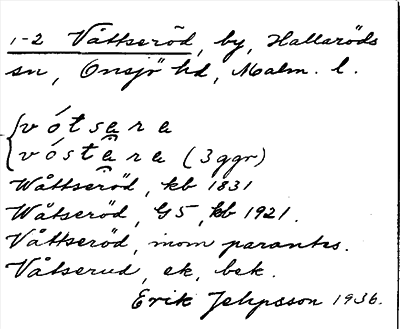 1-2 Våttseröd, by, Hallaröds
sn, Onsjö hd, Malm. l.
vótsera
vóstera (3 ggr)
Wåttseröd, kb 1831
Wåtseröd, G5, kb 1921.
Våttseröd, inom parantes.
Våtserud, ek, bek.
Erik Jeppsson 1936.